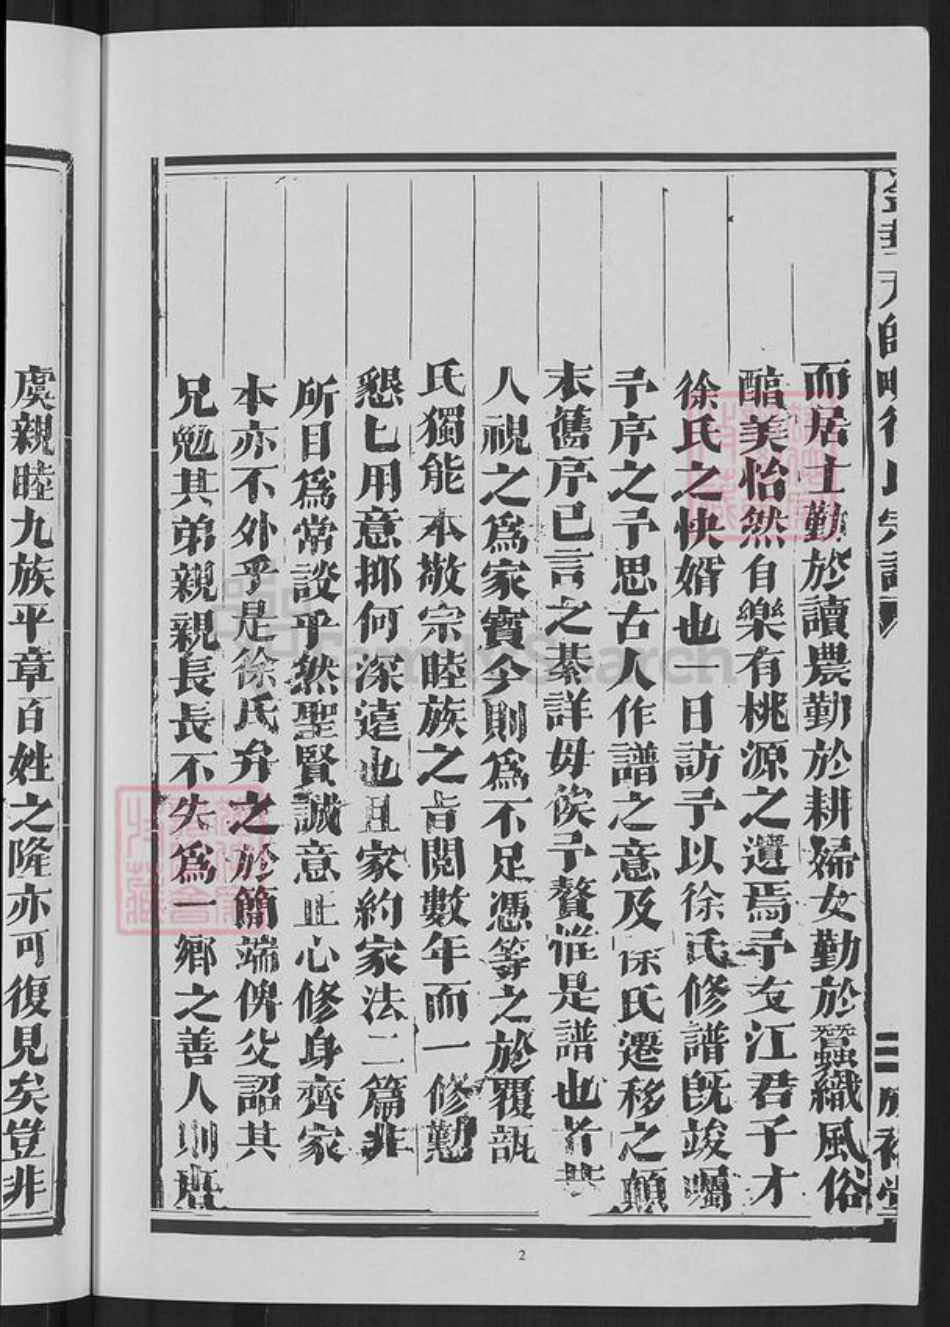 師
徐氏宗譜
而居士勤於讀農勤於耕婦女勤於蠶織風俗
醕美怡然自樂有桃源之遺焉予友江君子才
徐氏之快婿也一日訪予以徐氏修譜既竣囑
予序之予思古人作譜之意及徐氏遷移之顛
末舊序已言之綦詳毋俟予贅惟是譜也昔
人視之為家寳今則為不足憑等之於覆瓿
氏獨能本敬宗睦族之旨閱數年而一修勤
懇匕用意抑何深遠也且家約家法二篇非
所目為常談乎然聖賢誠意正心修身齊家
本亦不外乎是徐氏弁之於簡端俾父詔其
兄勉其弟親親長長不失為一鄉之善人則
虞親睦九族平章百姓之隆亦可復見矣豈非
2